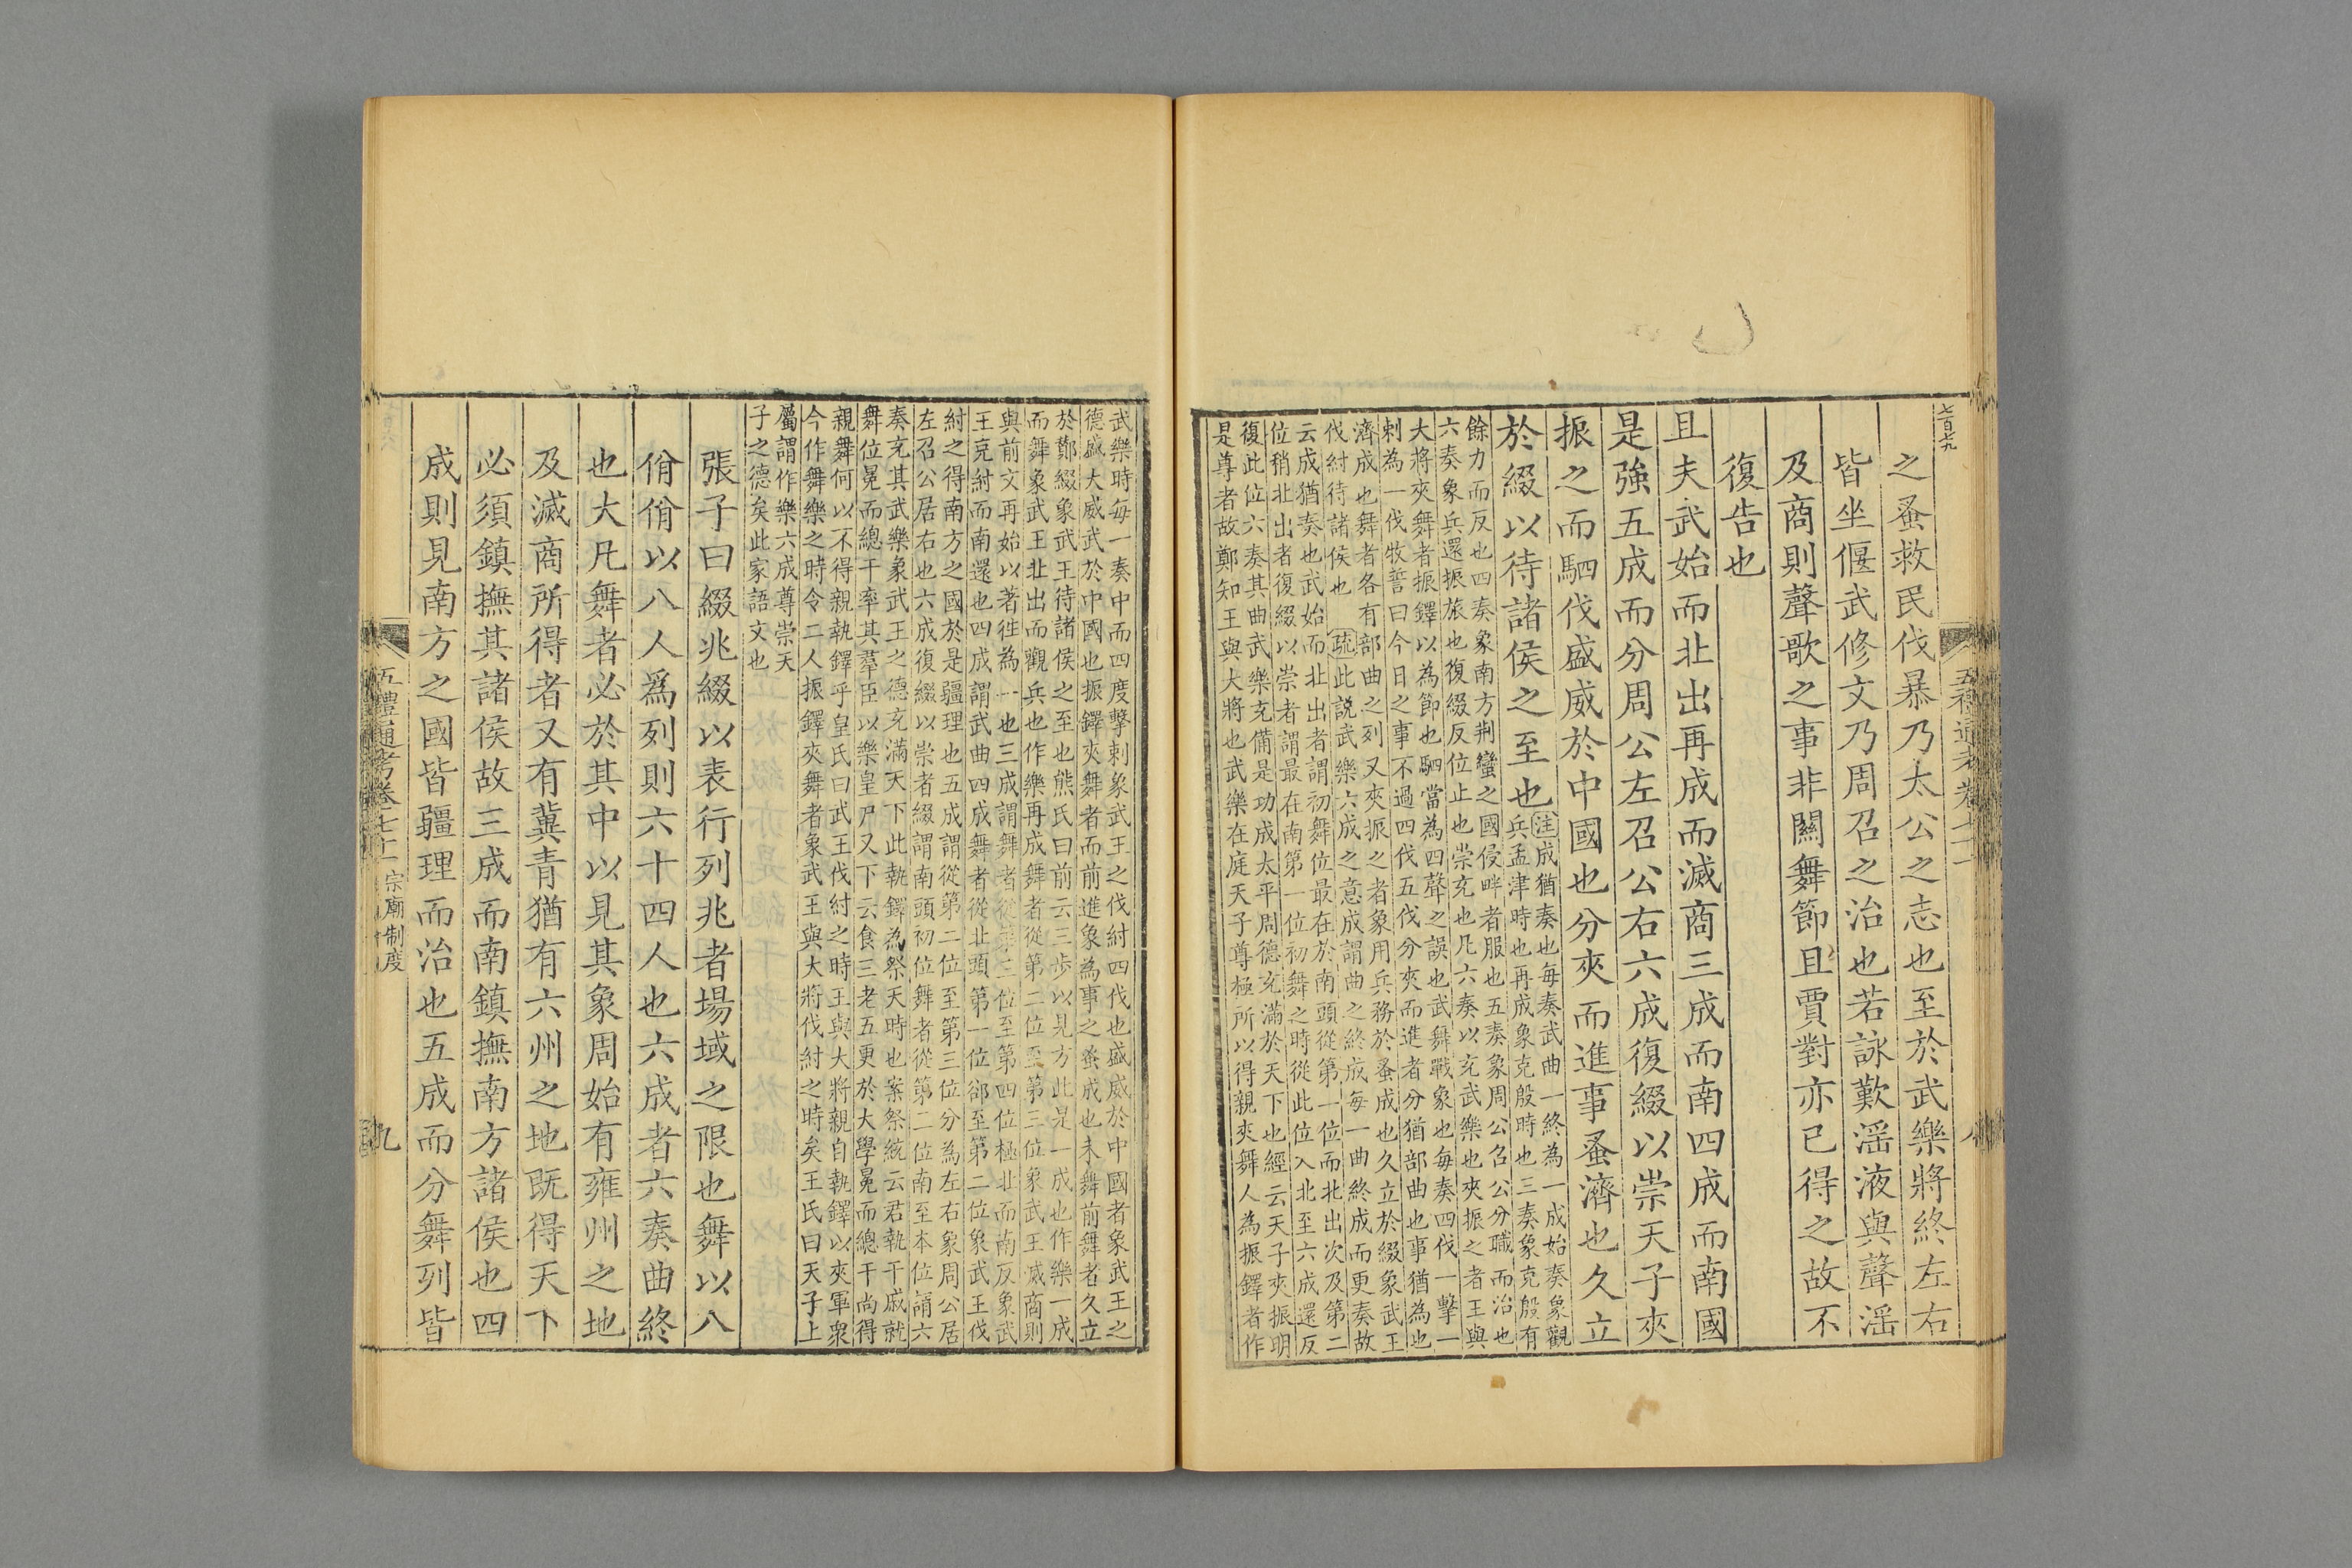 七百七九
之蚤救民伐暴乃太公之志也至於武樂將終左右
皆坐偃武修文乃周召之治也若詠歎滛液與聲滛
及商則聲歌之事非關舞節且賈對亦已得之故不
復告也
且夫武始而北出再成而滅商三成而南四成而南國
是強五成而分周公左召公右六成復綴以崇天子夾
振之而駟伐盛威於中國也分夾而進事蚤濟也久立
於綴以待諸侯之至也注成猶奏也每奏武曲一終為一成始奏象觀
兵孟津時也再成象克殷時也三奏象克殷有
餘力而反也四奏象南方荆蠻之國侵畔者服也五奏象周公召公分職而治也
六奏象兵還振旅也復綴反位止也崇充也凡六奏以充武樂也夾振之者王與
大將夾舞者振鐸以為節也駟當為四聲之誤也武舞戰象也每奏四伐一擊一
刺為一伐牧誓曰今日之事不過四伐五伐分夾而進者分猶部曲也事猶為也
濟成也舞者各有部曲之列又夾振之者象用兵務於蚤成也久立於綴象武王
伐紂待諸侯也疏此説武樂六成之意成謂曲之終成每一曲終成而更奏故
云成猶奏也武始而北出者謂初舞位最在於南頭從第一位而北出次及第二
位稍北出者復綴以崇者謂最在南第一位初舞之時從此位入北至六成還反
復此位六奏其曲武樂充備是功成太平周德充滿於天下也經云天子夾振明
是尊者故鄭知王與大將也武樂在庭天子尊極所以得親夾舞人為振鐸者作
武樂時每一奏中而四度擊刺象武王之伐紂四伐也盛威於中國者象武王之
德盛大威武於中國也振鐸夾舞者而前進象為事之蚤成也未舞前舞者久立
於鄭綴象武王待諸侯之至也熊氏曰前云三步以見方此是一成也作樂一成
而舞象武王北出而觀兵也作樂再成舞者從第二位至第三位象武王滅商則
與前文再始以著徃為一也三成謂舞者從第三位至第四位極北而南反象武
王克紂而南還也四成謂武曲四成舞者從北頭第一位郤至第二位象武王伐
紂之得南方之國於是疆理也五成謂從第二位至第三位分為左右象周公居
左召公居右也六成復綴以崇者綴謂南頭初位舞者從第二位南至本位謂六
奏充其武樂象武王之德充滿天下此執鐸為祭天時也案祭統云君執干戚就
舞位冕而總干率其羣臣以樂皇尸又下云食三老五更於大學冕而總干尚得
親舞何以不得親執鐸乎皇氏曰武王伐紂之時王與大將親自執鐸以夾軍衆
今作舞樂之時令二人振鐸夾舞者象武王與大將伐紂之時矣王氏曰天子上
屬謂作樂六成尊崇天
子之德矣此家語文也
張子曰綴兆綴以表行列兆者場域之限也舞以八
佾佾以八人爲列則六十四人也六成者六奏曲終
也大凡舞者必於其中以見其象周始有雍州之地
及滅商所得者又有冀青猶有六州之地既得天下
必須鎮撫其諸侯故三成而南鎮撫南方諸侯也四
成則見南方之國皆疆理而治也五成而分舞列皆
五禮通考卷七十一 宗廟制度 九